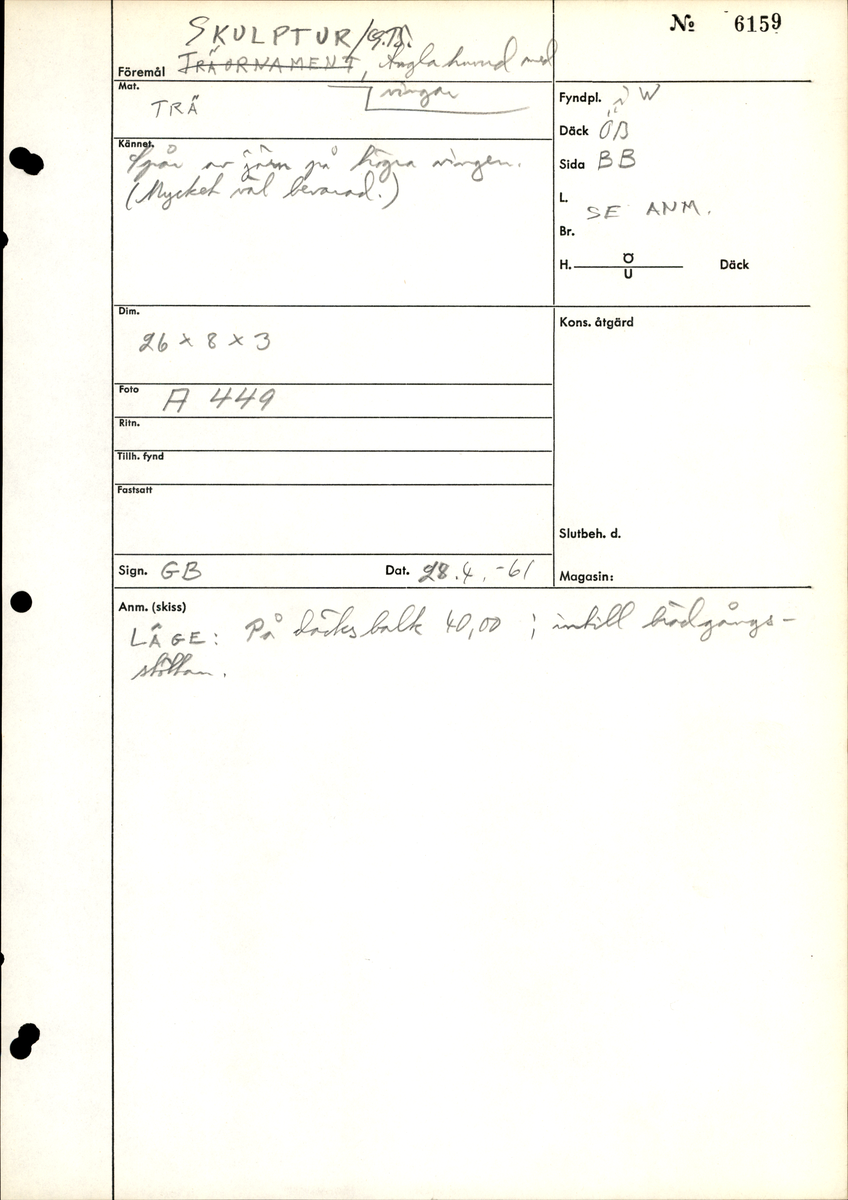 Nº 6159
SKULPTUR / G.B.
Föremål TRÄORNAMENT, Änglahuvud med
vingar
Mat.
TRÄ
Fyndpl. W
Däck ÖB
Sida BB
L. SE ANM.
Br.
H. Ö U Däck
Kännet.
Spår av järn på högra vingen.
(Mycket väl bevarad.)
Dim.
26 x 8 x 3
Kons. åtgärd
Foto A 449
Ritn.
Tillh. fynd
Fastsatt
Slutbeh. d.
Sign. GB Dat. 28.4.-61
Magasin:
Anm. (skiss)
LÄGE: På däcksbalk 40,00 ; intill brädgångs-
stöttan.